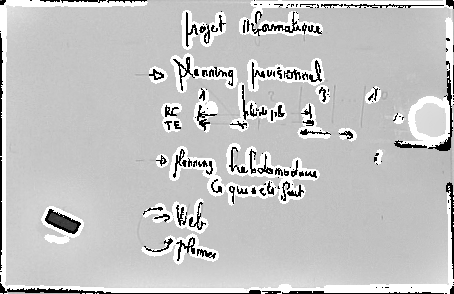 projet Informatique
→ planning prévisionnel
1 2 3
RC
TE
→ planning hebdomadaire
Ce qui a été fait
Web
planner